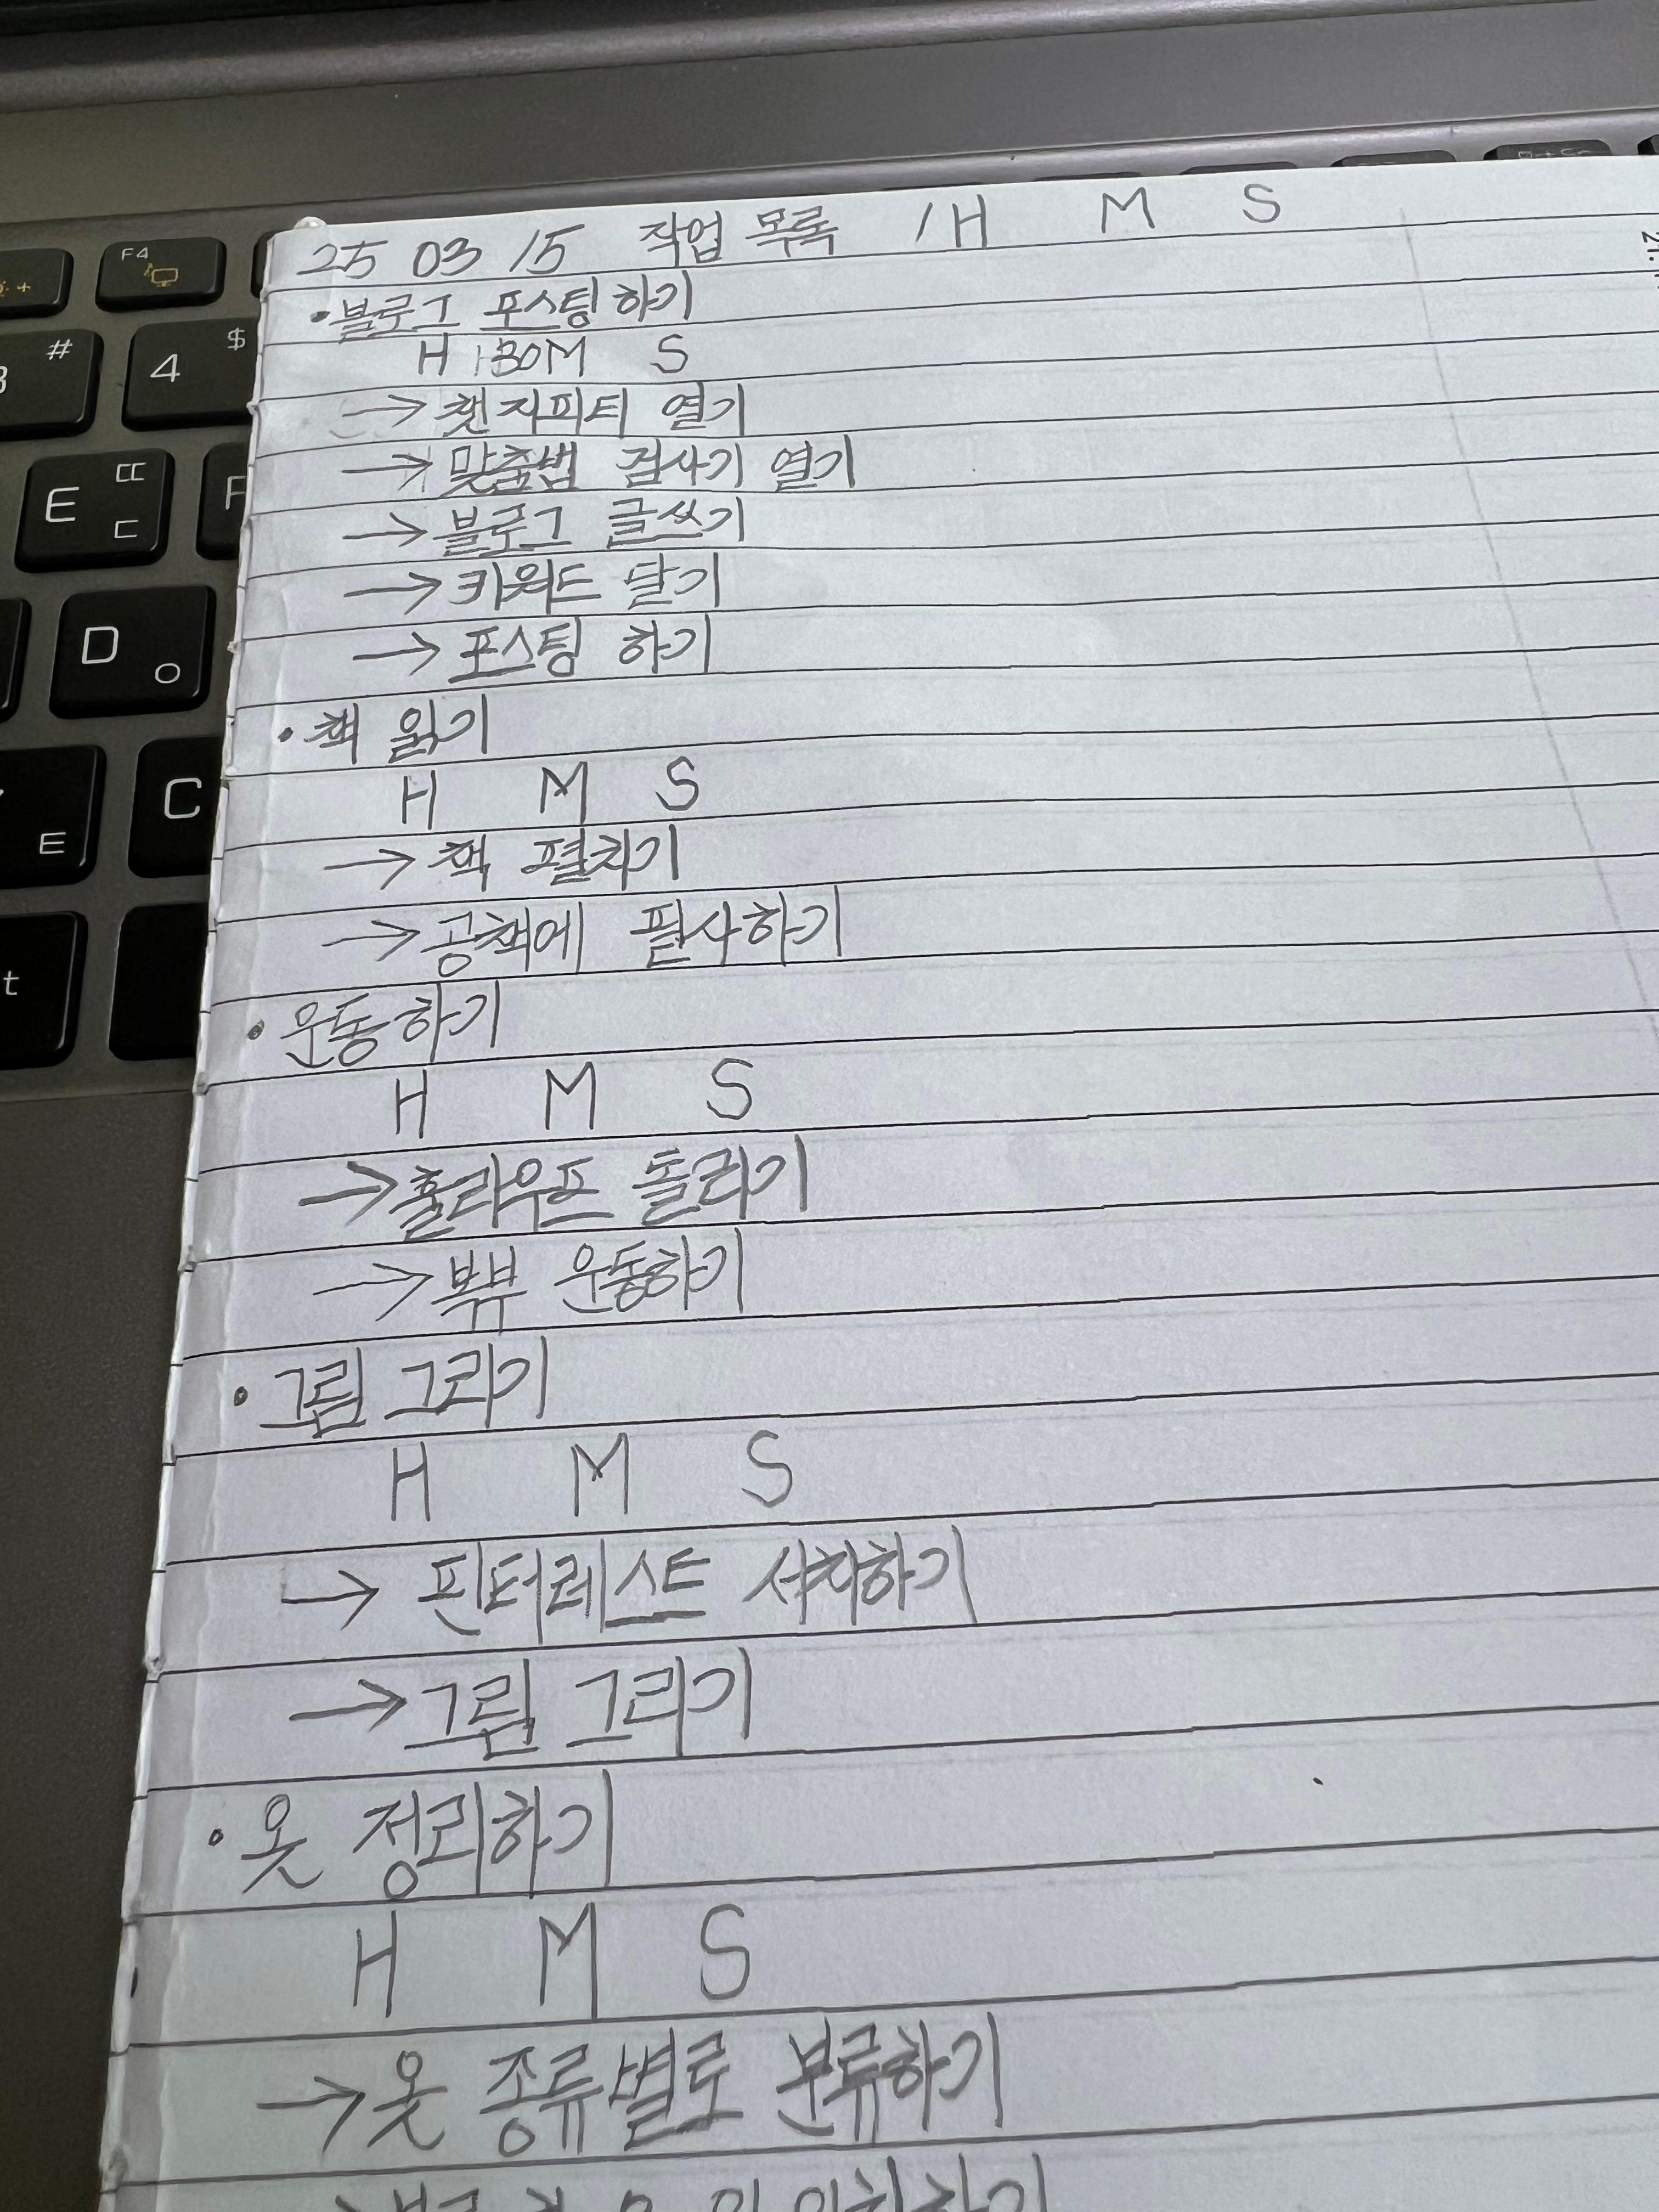 F4
# $
4
E ㄸ ㄷ
D ㅇ
C
E
t
25 03 15 작업 목록 / H M S
• 블로그 포스팅하기
H 30M S
→ 챗지피티 열기
→ 맞춤법 검사기 열기
→ 블로그 글쓰기
→ 키워드 달기
→ 포스팅 하기
• 책 읽기
H M S
→ 책 펼치기
→ 공책에 필사하기
• 운동하기
H M S
→ 훌라우프 돌리기
→ 복부 운동하기
• 그림 그리기
H M S
→ 핀터레스트 서치하기
→ 그림 그리기
• 옷 정리하기
H M S
→ 옷 종류별로 분류하기